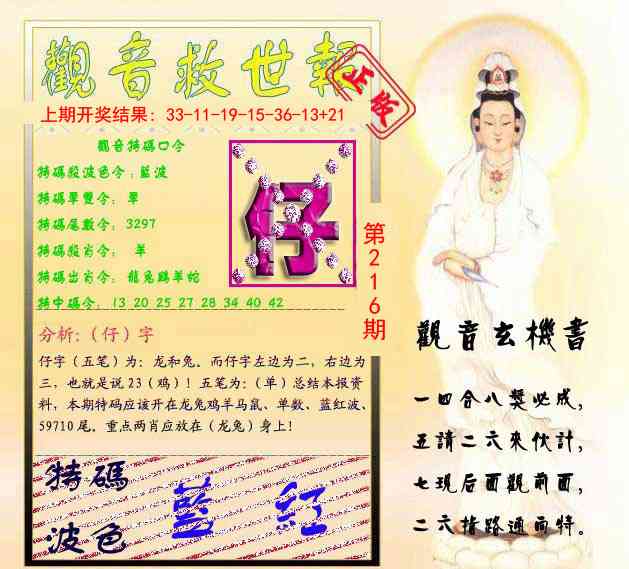 觀音救世報
正版
上期开奖结果：33-11-19-15-36-13+21
觀音特碼口令
特碼段波色令：藍波
特碼單雙令：單
特碼尾數令：3297
特碼段肖令：羊
特碼出肖令：龍兔鷄羊蛇
特中碼令：13 20 25 27 28 34 40 42
仔
第216期
分析：（仔）字
仔字（五笔）为：龙和兔。而仔字左边为二，右边为
三，也就是说 23（鸡）！五笔为：（单）总结本报资
料，本期特码应该开在龙兔鸡羊马鼠、单数、蓝红波、
59710 尾。重点两肖应放在（龙兔）身上！
特碼
波色
藍 紅
觀音玄機書
一四合八獎必成，
五請二六來伙計，
七現后面觀前面，
二六指路通南特。